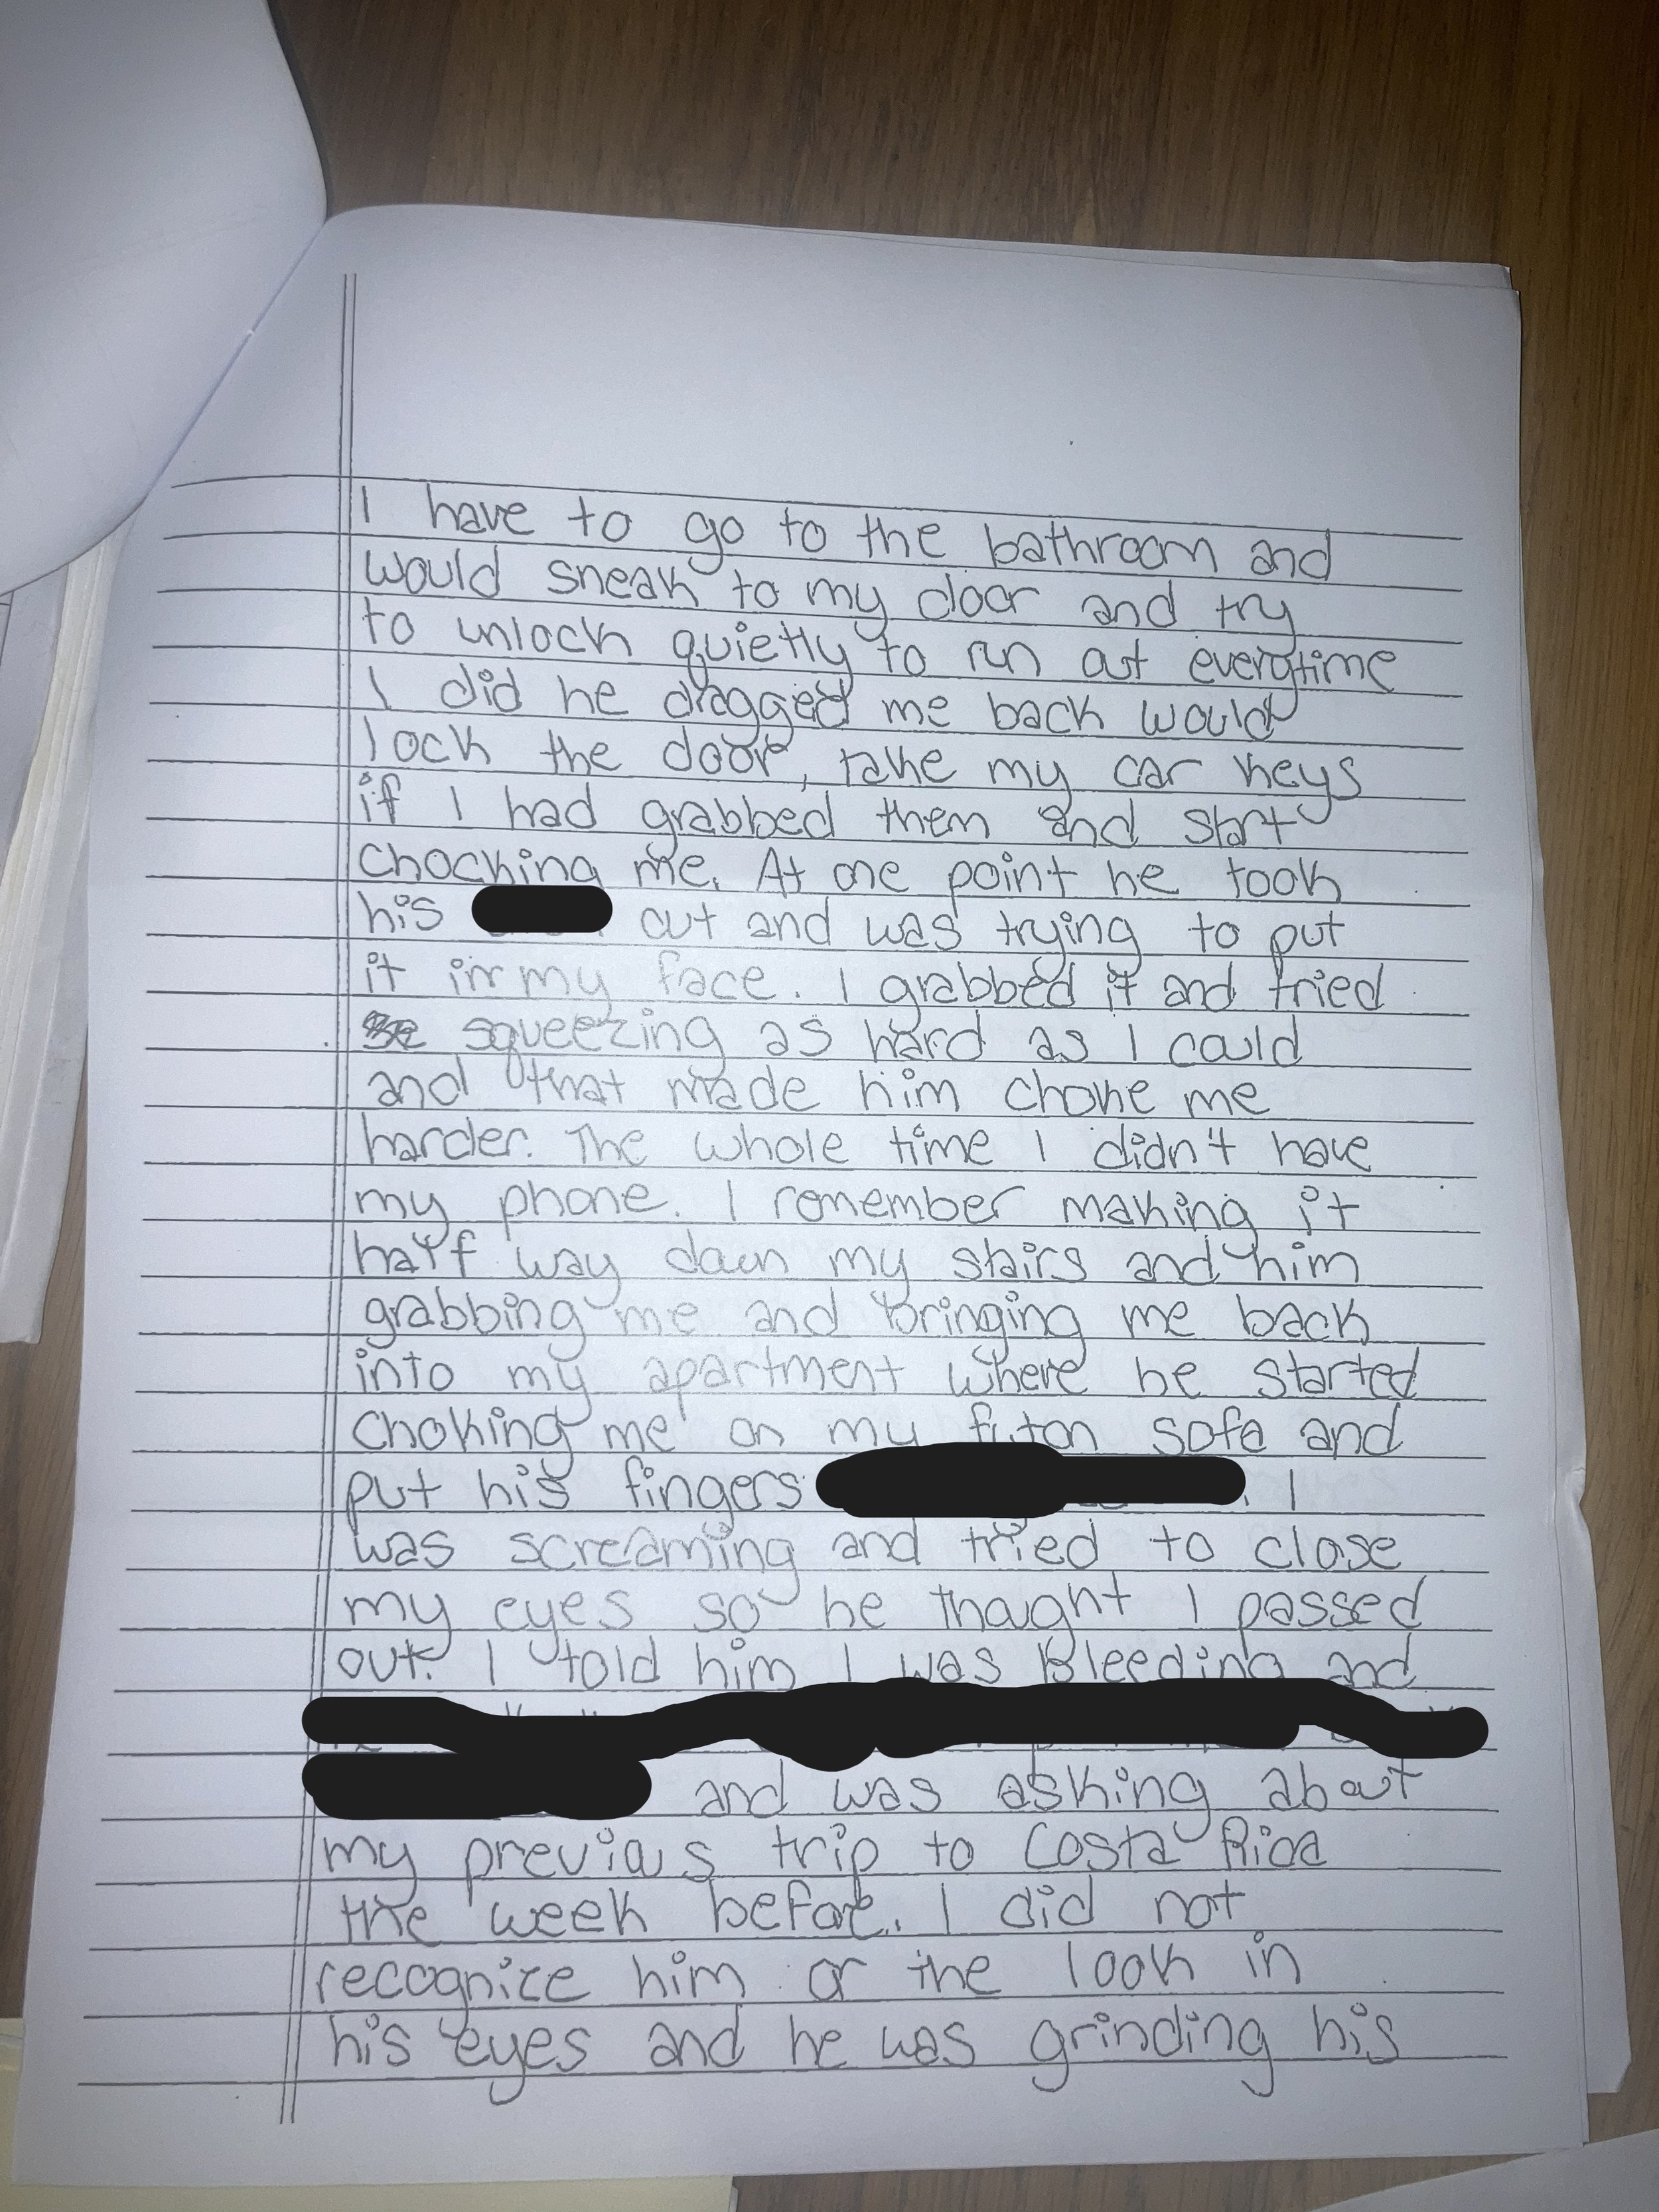 I have to go to the bathroom and
would sneak to my door and try
to unlock quietly to run out everytime
I did he dragged me back would
lock the door, take my car keys
if I had grabbed them and start
chocking me. At one point he took
his out and was trying to put
it in my face. I grabbed it and tried
squeezing as hard as I could
and that made him choke me
harder. The whole time I didn't have
my phone. I remember making it
half way down my stairs and him
grabbing me and bringing me back
into my apartment where he started
choking me on my futon sofa and
put his fingers . I
was screaming and tried to close
my eyes so he thought I passed
out. I told him I was Bleeding and
and was asking about
my previous trip to Costa Rica
the week before. I did not
recognize him or the look in
his eyes and he was grinding his